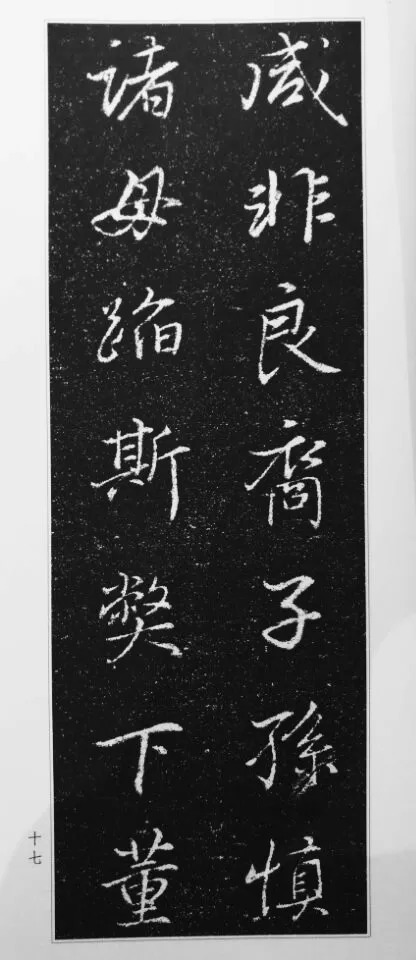 咸非良裔子孫慎
諸毋蹈斯弊下董
十七